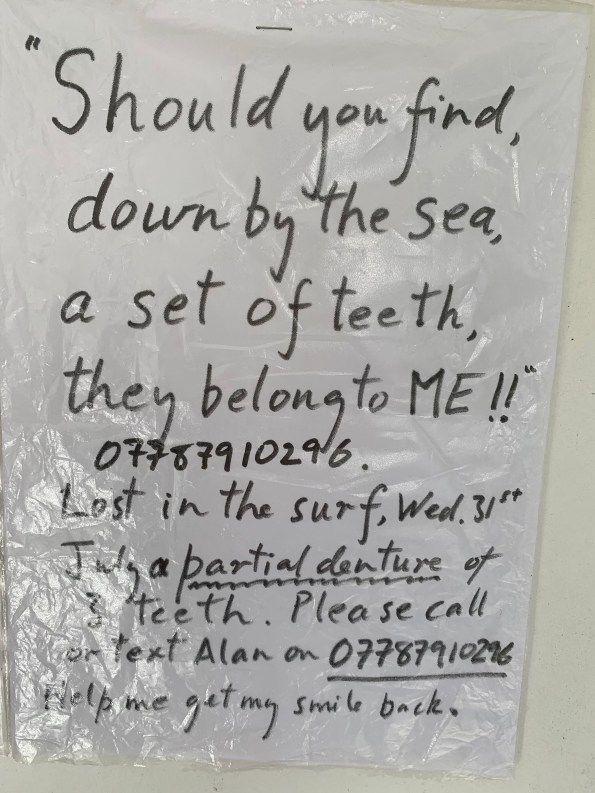 "Should you find,
down by the sea,
a set of teeth,
they belong to ME!!"
07787910296.
Lost in the surf, Wed. 31st
July a partial denture of
3 teeth. Please call
or text Alan on 07787910296
Help me get my smile back.